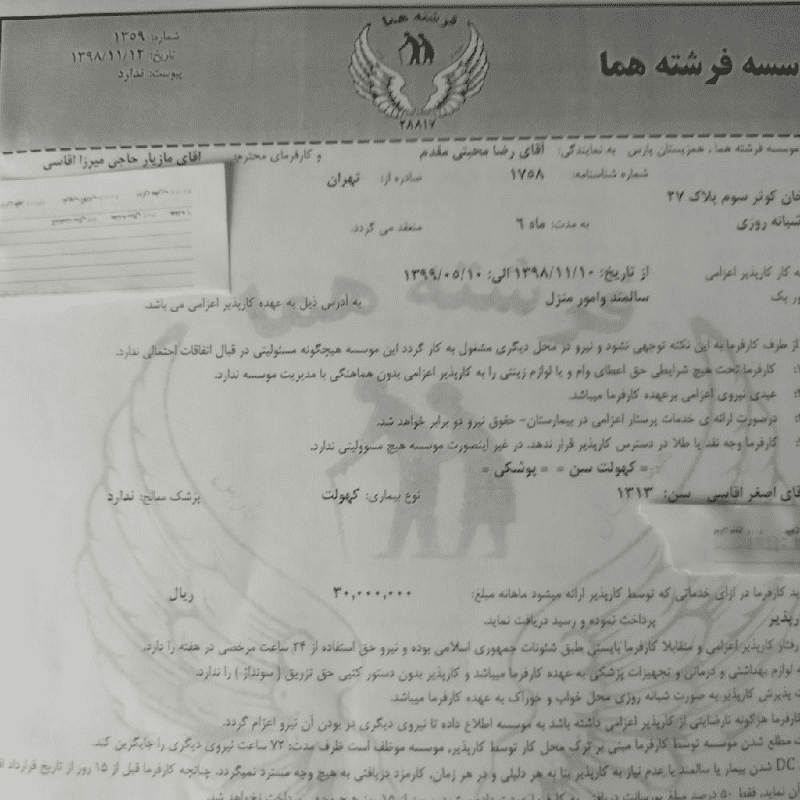 شماره: ۱۳۵۹
تاریخ: ۱۳۹۸/۱۱/۱۲
پیوست: ندارد
فرشته هما
۲۸۸۱۷
سسه فرشته هما
موسسه فرشته هما، همزیستان پارس به نمایندگی: آقای رضا محبتی مقدم و کارفرمای محترم: آقای مازیار حاجی میرزا آقاسی
شماره شناسنامه: ۱۷۵۸ صادره از: تهران
خان کوثر سوم پلاک ۲۷
شبانه روزی به مدت: ۶ ماه منعقد می گردد.
به کار کارپذیر اعزامی از تاریخ: ۱۳۹۸/۱۱/۱۰ الی: ۱۳۹۹/۰۵/۱۰
ور یک سالمند وامور منزل به آدرس ذیل به عهده کارپذیر اعزامی می باشد.
از طرف کارفرما به این نکته توجهی نشود و نیرو در محل دیگری مشغول به کار گردد این موسسه هیچگونه مسئولیتی در قبال اتفاقات احتمالی ندارد.
کارفرما تحت هیچ شرایطی حق اعطای وام و یا لوازم زینتی را به کارپذیر اعزامی بدون هماهنگی با مدیریت موسسه ندارد.
عیدی نیروی اعزامی برعهده کارفرما میباشد.
درصورت ارائه ی خدمات پرستار اعزامی در بیمارستان- حقوق نیرو دو برابر خواهد شد.
کارفرما وجه نقد یا طلا در دسترس کارپذیر قرار ندهد. در غیر اینصورت موسسه هیچ مسوولیتی ندارد.
= کهولت سن = = پوشکی =
قای اصغر آقاسی سن: ۱۳۱۳ نوع بیماری: کهولت پزشک معالج: ندارد
ید کارفرما در ازای خدماتی که توسط کارپذیر ارائه میشود ماهانه مبلغ: ۳۰,۰۰۰,۰۰۰ ریال
رپذیر پرداخت نموده و رسید دریافت نماید.
رفتار کارپذیر اعزامی و متقابلا کارفرما بایستی طبق شئونات جمهوری اسلامی بوده و نیرو حق استفاده از ۲۴ ساعت مرخصی در هفته را دارد.
ه لوازم بهداشتی و درمانی و تجهیزات پزشکی به عهده کارفرما میباشد و کارپذیر بدون دستور کتبی حق تزریق (سونداژ) را ندارد.
ت پذیرش کارپذیر به صورت شبانه روزی محل خواب و خوراک به عهده کارفرما میباشد.
کارفرما هرگونه نارضایتی از کارپذیر اعزامی داشته باشد به موسسه اطلاع داده تا نیروی دیگری در بودن آن نیرو اعزام گردد.
ت مطلع شدن موسسه توسط کارفرما مبنی بر ترک محل کار توسط کارپذیر، موسسه موظف است ظرف مدت: ۷۲ ساعت نیروی دیگری را جایگزین کند.
DC شدن بیمار یا سالمند یا عدم نیاز به کارپذیر بنا به هر دلیلی و در هر زمان، کارمزد دریافتی به هیچ وجه مسترد نمیگردد. چنانچه کارفرما قبل از ۱۵ روز از تاریخ قرارداد
نماید، فقط ۵۰ درصد مبلغ